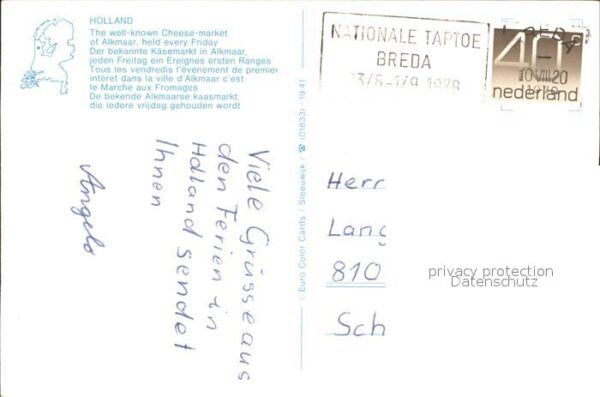 HOLLAND
The well-known Cheese-market
of Alkmaar, held every Friday
Der bekannte Käsemarkt in Alkmaar,
jeden Freitag ein Ereignes ersten Ranges
Tous les vendredis l'évenement de premier
intéret dans la ville d'Alkmaar c'est
le Marché aux Fromages
De bekende Alkmaarse kaasmarkt,
die iedere vrijdag gehouden wordt
Viele Grüsse aus
den Ferien in
Holland sendet
Ihnen
Angelo
© Euro Color Cards / Sleeuwijk / ☎ (01833) - 19 41
NATIONALE TAPTOE
BREDA
23/8-1/9 1979
40
10 VIII 20
1979
nederland
Herr
Lang
810
Sch
privacy protection
Datenschutz